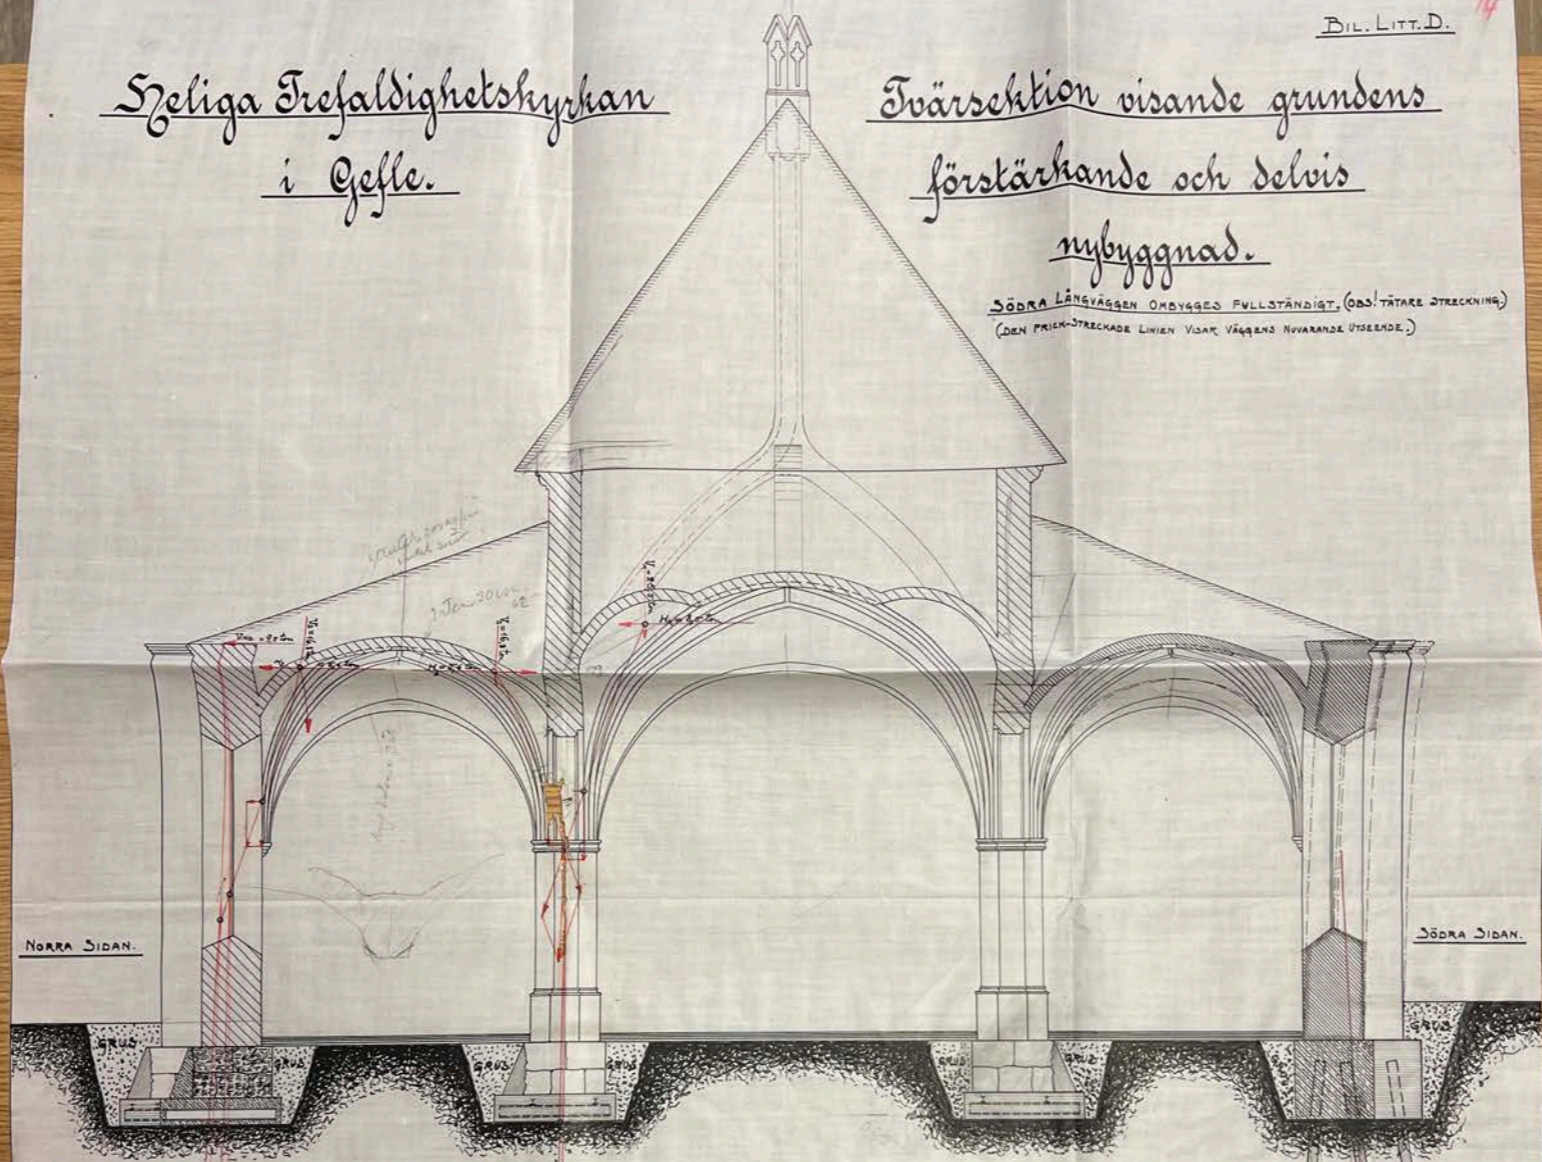 BIL. LITT. D.
Heliga Trefaldighetskyrkan
i Gefle.
Tvärsektion visande grundens
förstärkande och delvis
nybyggnad.
SÖDRA LÅNGVÄGGEN OMBYGGES FULLSTÄNDIGT. (OBS! TÄTARE STRECKNING.)
(DEN PRICK-STRECKADE LINIEN VISAR VÄGGENS NUVARANDE UTSEENDE.)
NORRA SIDAN.
SÖDRA SIDAN.
GRUS
GRUS
GRUS
GRUS
GRUS
GRUS
GRUS